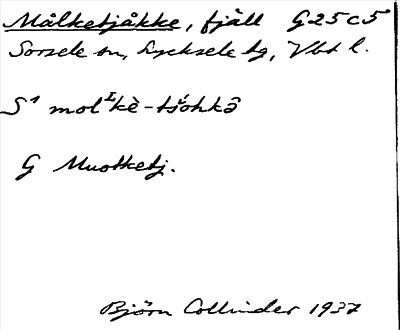 Målketjåkke, fjäll G25c5
Sorsele sn, Lycksele lg, Vbt l.
S¹ molᴵkè-tšohkə̂
G Muotketj.
Björn Collinder 1937